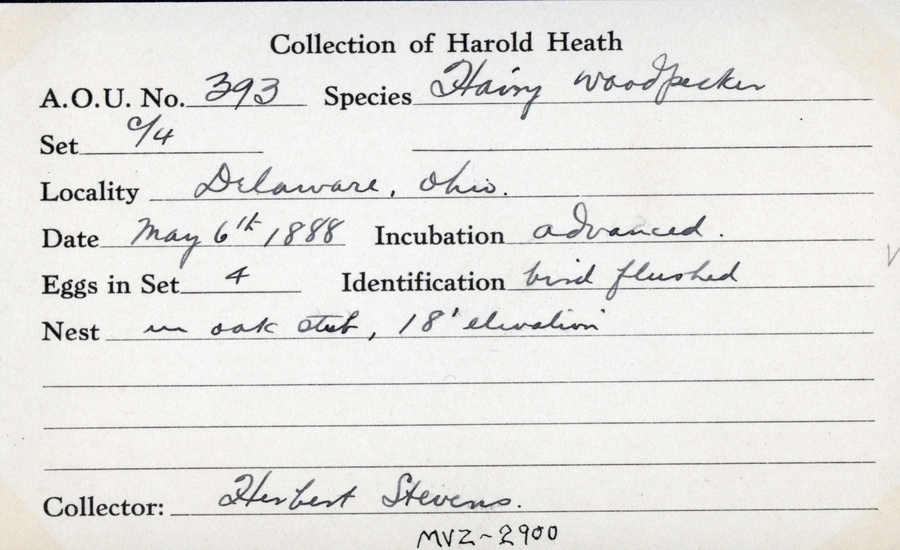 Collection of Harold Heath
A.O.U. No. 393 Species Hairy Woodpecker
Set c/4
Locality Delaware, Ohio.
Date May 6th 1888 Incubation advanced.
Eggs in Set 4 Identification bird flushed
Nest in oak stub, 18' elevation
Collector: Herbert Stevens.
MVZ-2900